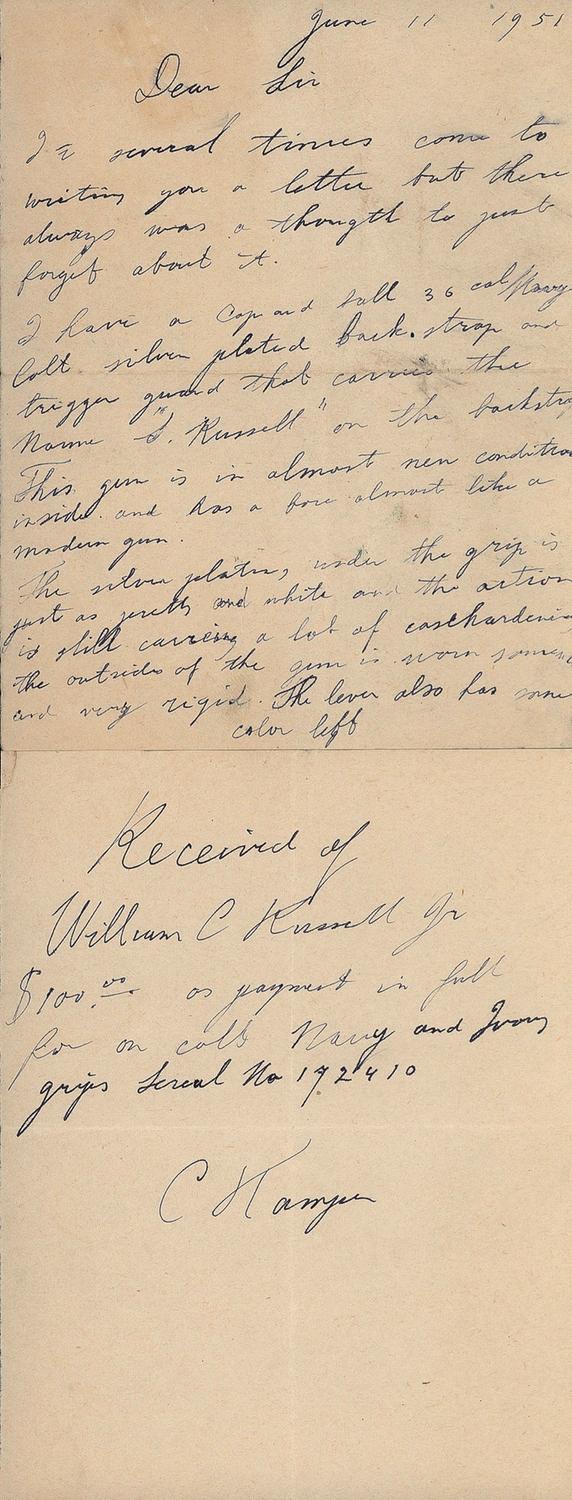 June 11 1951
Dear Sir
I several times come to
writing you a letter but there
always was a thougth to just
forget about it.
I have a Cap and ball 36 cal Navy
Colt silver plated back.strap and
trigger guard that carries the
Name "S. Russell" on the backstra
This gun is in almost new conditio
inside and has a bore almost like a
modern gun.
The silver plating under the grip is
just as pretty and white and the action
is still carrieing a lot of casehardenin
the outside of the gun is worn some
and very rigid. The lever also has some
color left
Received of
William C Russell Jr
$100.00 as payment in full
for on colt Navy and Ivory
grips Sereal No 172410
C